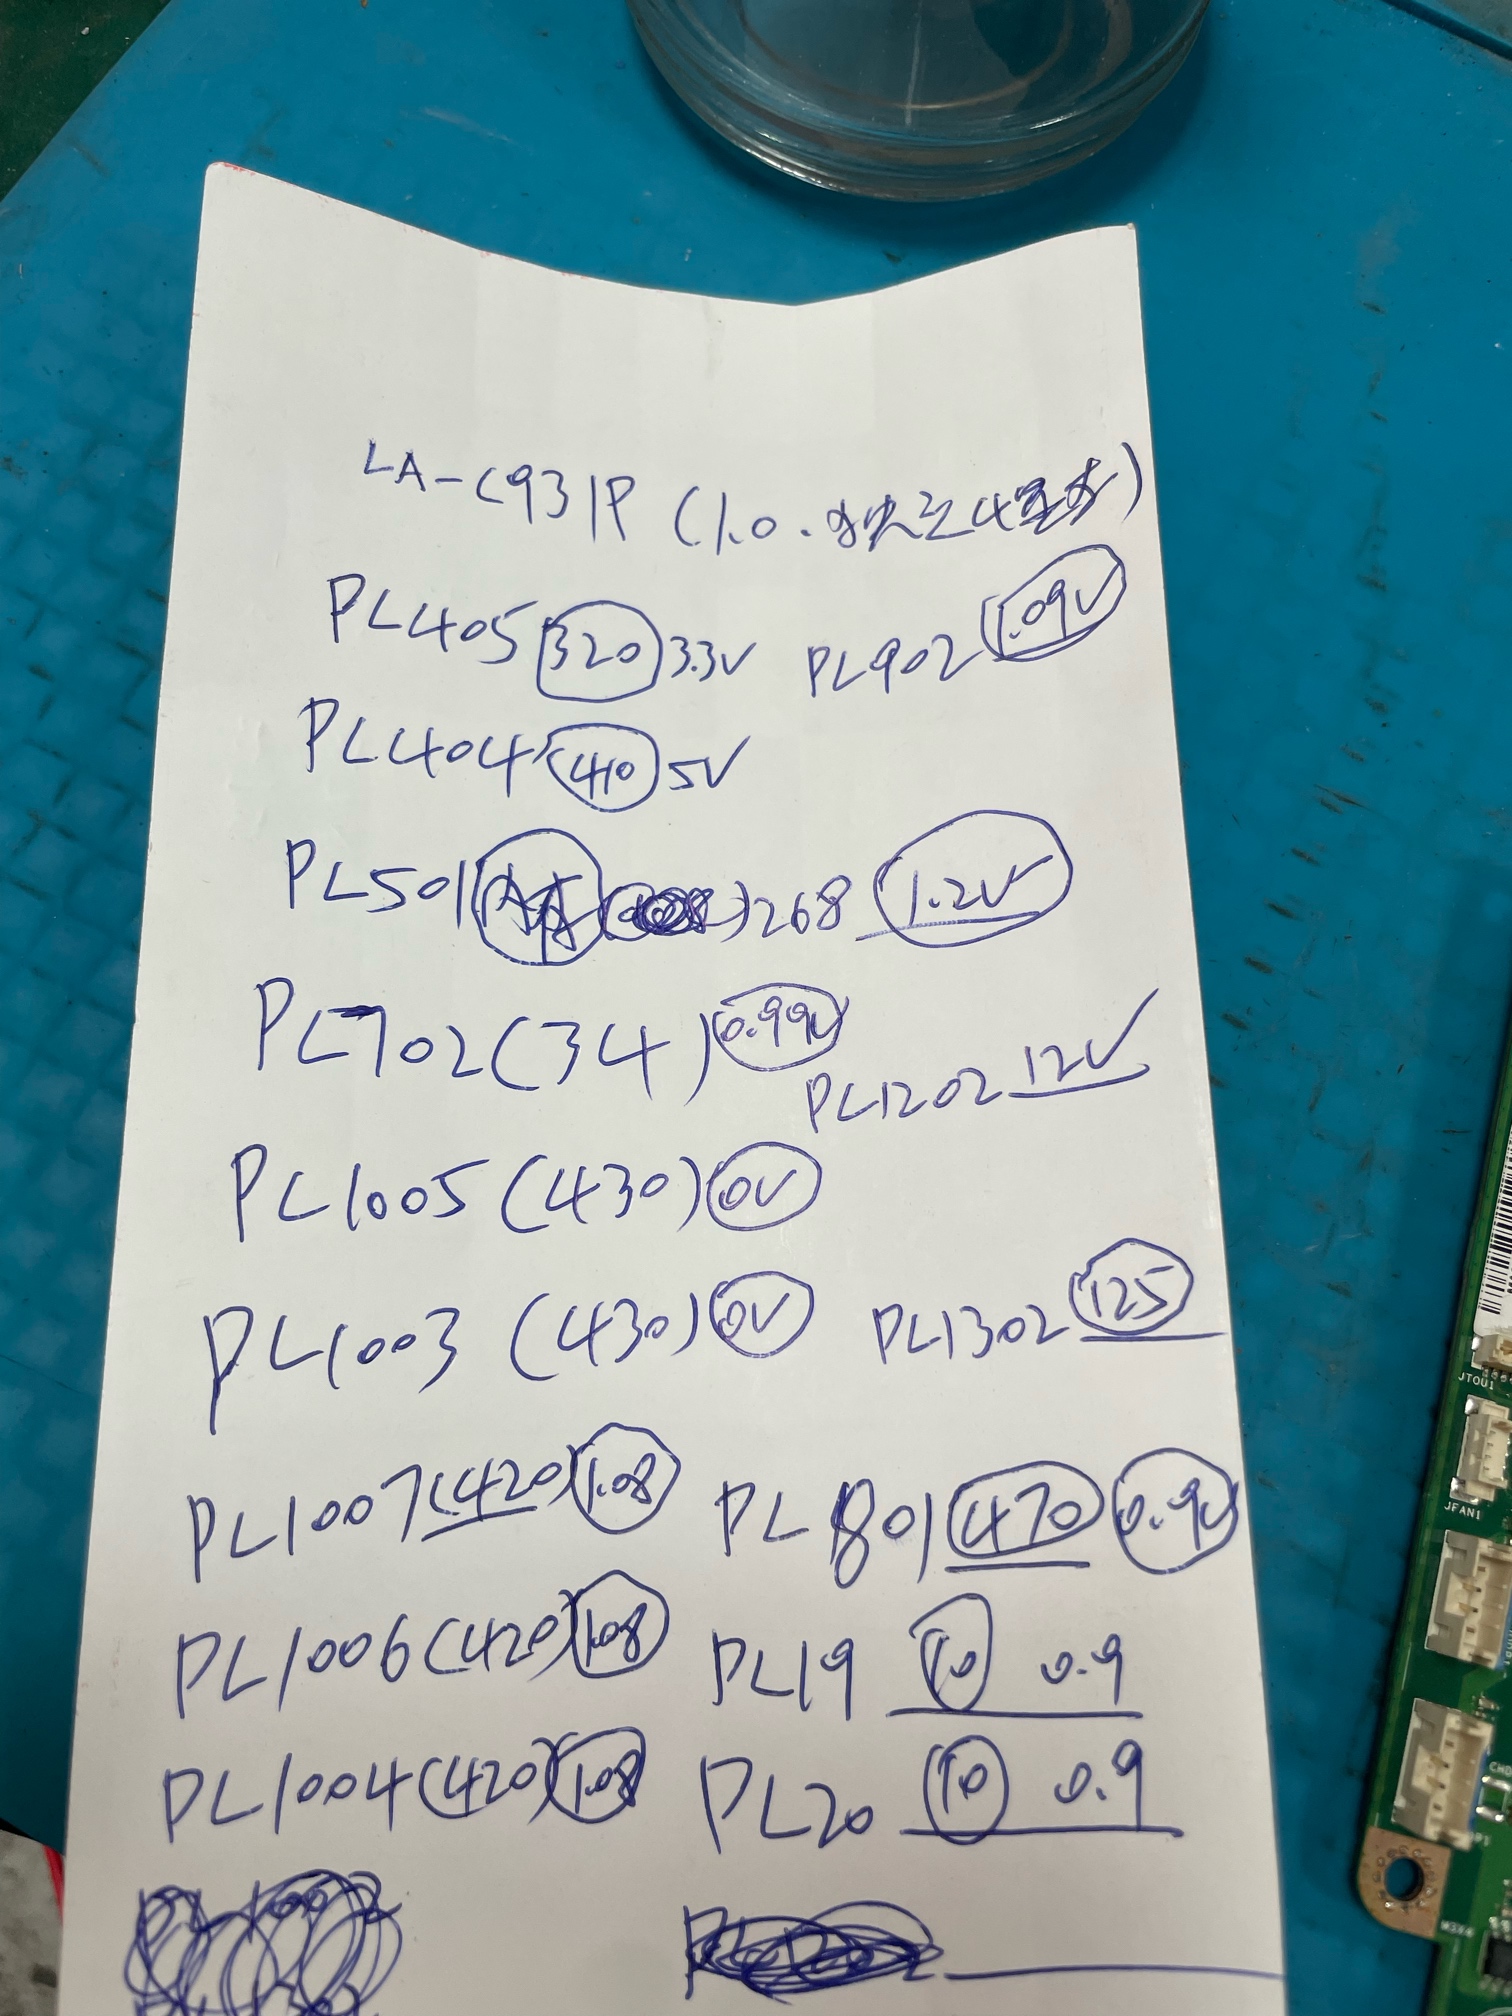 LA-C931P (1.0. 4)
PL405 320 3.3V
PL902 1.09V
PL404 410 5V
PL501 268 1.2V
PL702 (34) 0.99V
PL1202 12V
PL1005 (430) 0V
PL1003 (430) 0V
PL1302 125
PL1007 (420) 1.08
PL801 470 0.9V
PL1006 (420) 1.08
PL19 10 0.9
PL1004 (420) 1.08
PL20 10 0.9
JTOU1
JFAN1